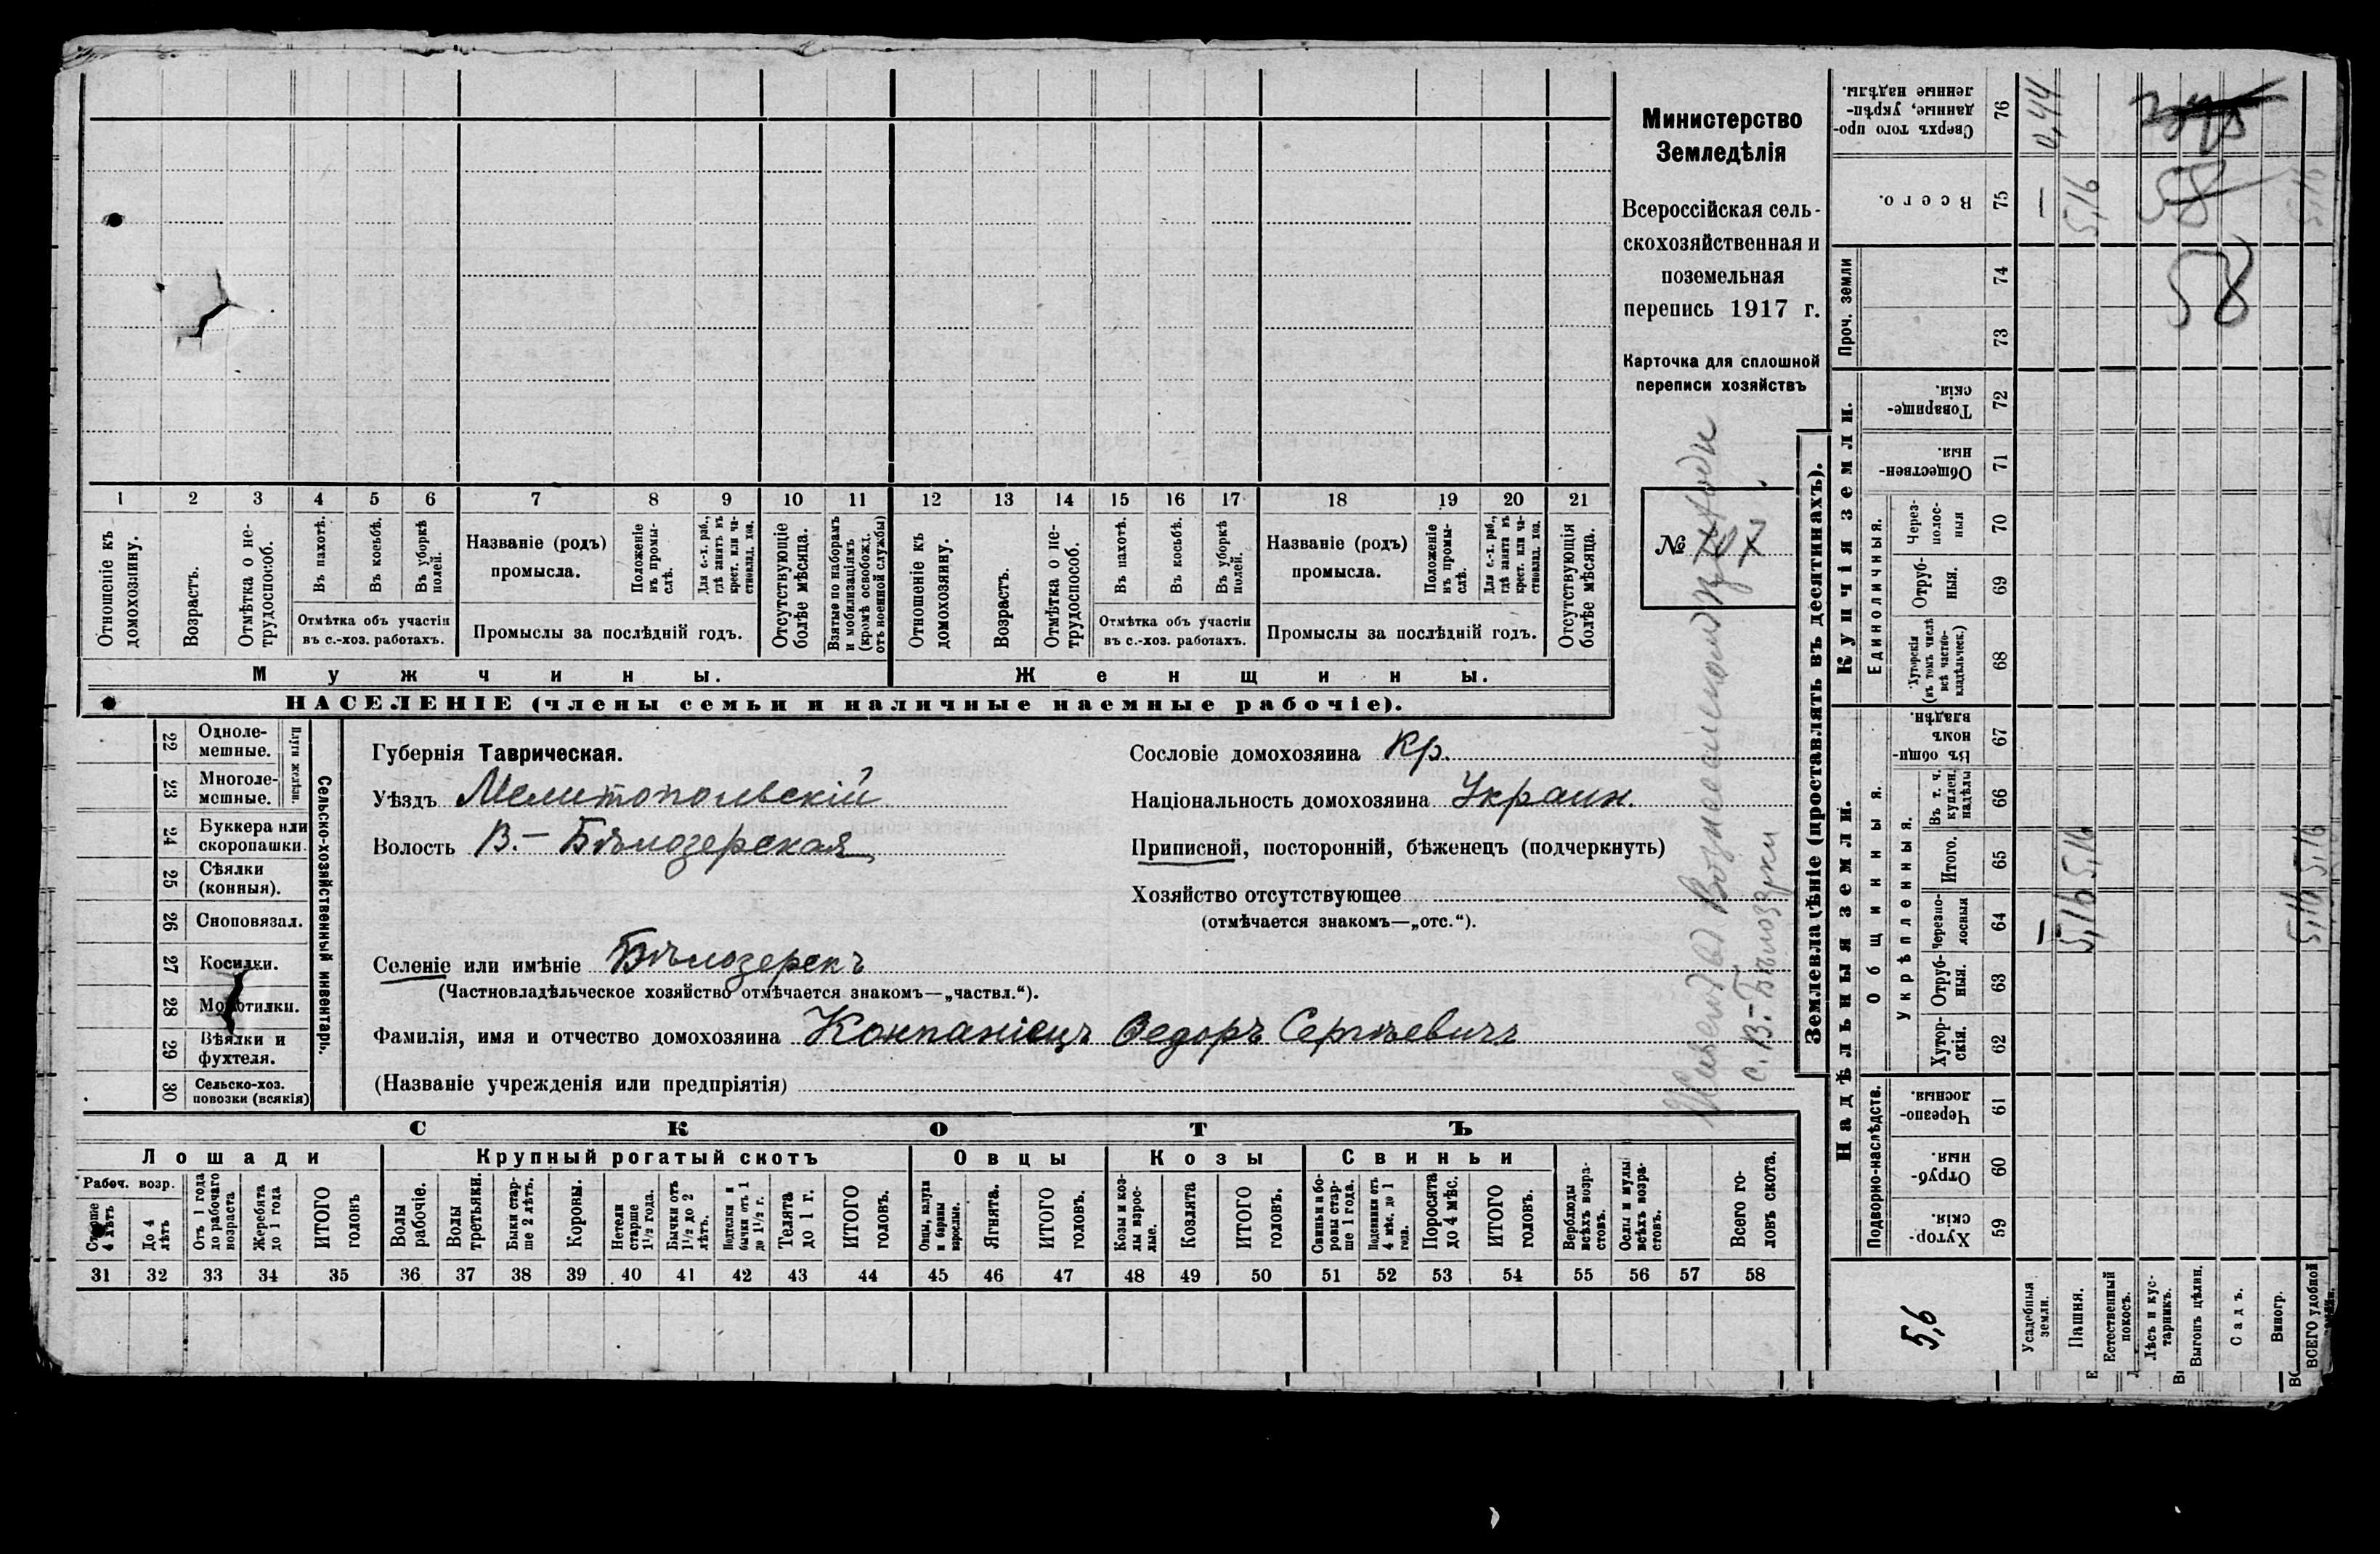 Министерство
Земледѣлія
Всероссійская сель-
скохозяйственная и
поземельная
перепись 1917 г.
Карточка для сплошной
переписи хозяйствъ
№
1 2 3 4 5 6 7 8 9 10 11 12 13 14 15 16 17 18 19 20 21
Отношеніе къ домохозяину.
Возрастъ.
Отмѣтка о не-трудоспособ.
Въ пахотѣ.
Въ косьбѣ.
Въ уборкѣ полей.
Отмѣтка объ участіи
въ с.-хоз. работахъ.
Названіе (родъ)
промысла.
Положеніе въ промы-слѣ.
Для с.-х. раб., гдѣ занятъ въ крест. или ча-стновлад. хоз.
Промыслы за послѣдній годъ.
Отсутствующіе болѣе мѣсяца.
Взятые по наборамъ и мобилизаціямъ (кромѣ освобожд. отъ военной службы)
Отношеніе къ домохозяину.
Возрастъ.
Отмѣтка о не-трудоспособ.
Въ пахотѣ.
Въ косьбѣ.
Въ уборкѣ полей.
Отмѣтка объ участіи
въ с.-хоз. работахъ.
Названіе (родъ)
промысла.
Положеніе въ промы-слѣ.
Для с.-х. раб., гдѣ занята въ крест. или ча-стновлад. хоз.
Промыслы за послѣдній годъ.
Отсутствующія болѣе мѣсяца.
Мужчины. Женщины.
НАСЕЛЕНІЕ (члены семьи и наличные наемные рабочіе).
Сельско-хозяйственный инвентарь.
Плуги желѣзн.
22 Одноле-мешные.
23 Многоле-мешные.
24 Буккера или скоропашки.
25 Сѣялки (конныя).
26 Сноповязал.
27 Косилки.
28 Молотилки.
29 Вѣялки и фухтеля.
30 Сельско-хоз. повозки (всякія)
Губернія Таврическая.
Уѣздъ Мелитопольскій
Волость В.-Бѣлозерская
Селеніе или имѣніе Бѣлозерекъ
(Частновладѣльческое хозяйство отмѣчается знакомъ—„частвл.“).
Фамилія, имя и отчество домохозяина Компаніецъ Ѳедоръ Сергѣевичъ
(Названіе учрежденія или предпріятія)
Сословіе домохозяина Кр.
Національность домохозяина Украин.
Приписной, посторонній, бѣженецъ (подчеркнуть)
Хозяйство отсутствующее
(отмѣчается знакомъ—„отс.“).
с. В.-Бѣлозерки
СКОТЪ
Лошади Крупный рогатый скотъ Овцы Козы Свиньи
Рабоч. возр.
Старше 4 лѣтъ
До 4 лѣтъ
Отъ 1 года до рабочаго возраста
Жеребята до 1 года
ИТОГО головъ
Волы рабочіе.
Волы третьяки.
Быки стар-ше 2 лѣтъ.
Коровы.
Нетели старше 1½ года.
Бычки отъ 1½ до 2 лѣтъ.
Подтелки и бычки отъ 1 до 1½ г.
Телята до 1 г.
ИТОГО головъ.
Овцы, валухи и бараны взрослые.
Ягнята.
ИТОГО головъ.
Козы и коз-лы взрос-лые.
Козлята
ИТОГО головъ.
Свиньи и бо-ровы стар-ше 1 года.
Подсвинки отъ 4 мѣс. до 1 года.
Поросята до 4 мѣс.
ИТОГО головъ.
Верблюды всѣхъ возра-стовъ.
Ослы и мулы всѣхъ возра-стовъ.
Всего го-ловъ скота.
31 32 33 34 35 36 37 38 39 40 41 42 43 44 45 46 47 48 49 50 51 52 53 54 55 56 57 58
Землевладѣніе (проставлять въ десятинахъ).
Надѣльныя земли. Купчія земли. Проч. земли
Подворно-наслѣдств.
Общинныя.
Укрѣпленныя.
Единоличныя.
59 Хутор-скія.
60 Отруб-ныя.
61 Черезпо-лосныя.
62 Хутор-скія.
63 Отруб-ныя.
64 Черезпо-лосныя
65 Итого.
66 Въ т. ч. куплен. надѣлы
67 Въ общи-номъ владѣн.
68 Хуторскія (въ томъ числѣ всѣ частно-владѣльческ.)
69 Отруб-ныя.
70 Через-полос-ныя
71 Обществен-ныя.
72 Товарище-скія.
73
74
75 Всего.
76 Сверхъ того про-данные, укрѣп-ленные надѣлы.
Усадебныя земли.
Пашня.
Естественный покосъ.
Лѣсъ и кус-тарникъ.
Выгонъ цѣлин.
Садъ.
Виногр.
ВСЕГО удобной
5,6
— — 0,44
5,16 5,16 5,16
58
58
5,16 5,16 5,16